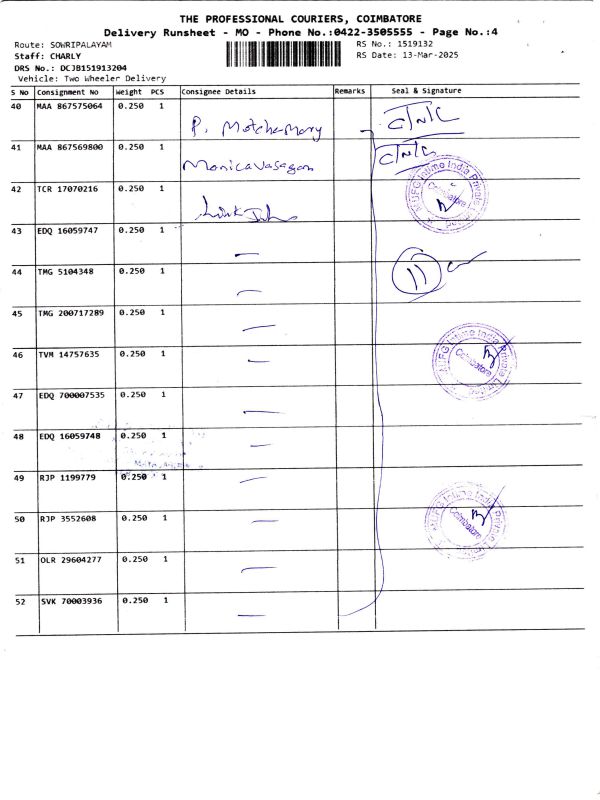 THE PROFESSIONAL COURIERS, COIMBATORE
Delivery Runsheet - MO - Phone No.:0422-3505555 - Page No.:4
Route: SOWRIPALAYAM
RS No.: 1519132
Staff: CHARLY
RS Date: 13-Mar-2025
DRS No.: DCJB151913204
Vehicle: Two Wheeler Delivery
S No Consignment No Weight PCS Consignee Details Remarks Seal & Signature
40 MAA 867575064 0.250 1
P. Motcha mary
41 MAA 867569800 0.250 1
Monicavasagan
42 TCR 17070216 0.250 1
MUFG Intime India Private
Coimbatore
43 EDQ 16059747 0.250 1 —
44 TMG 5104348 0.250 1 —
11
45 TMG 200717289 0.250 1 —
46 TVM 14757635 0.250 1 —
MUFG Intime India Private
Coimbatore
47 EDQ 700007535 0.250 1 —
48 EDQ 16059748 0.250 1 —
49 RJP 1199779 0.250 1 —
50 RJP 3552608 0.250 1 —
MUFG Intime India Private
Coimbatore
51 OLR 29604277 0.250 1 —
52 SVK 70003936 0.250 1 —